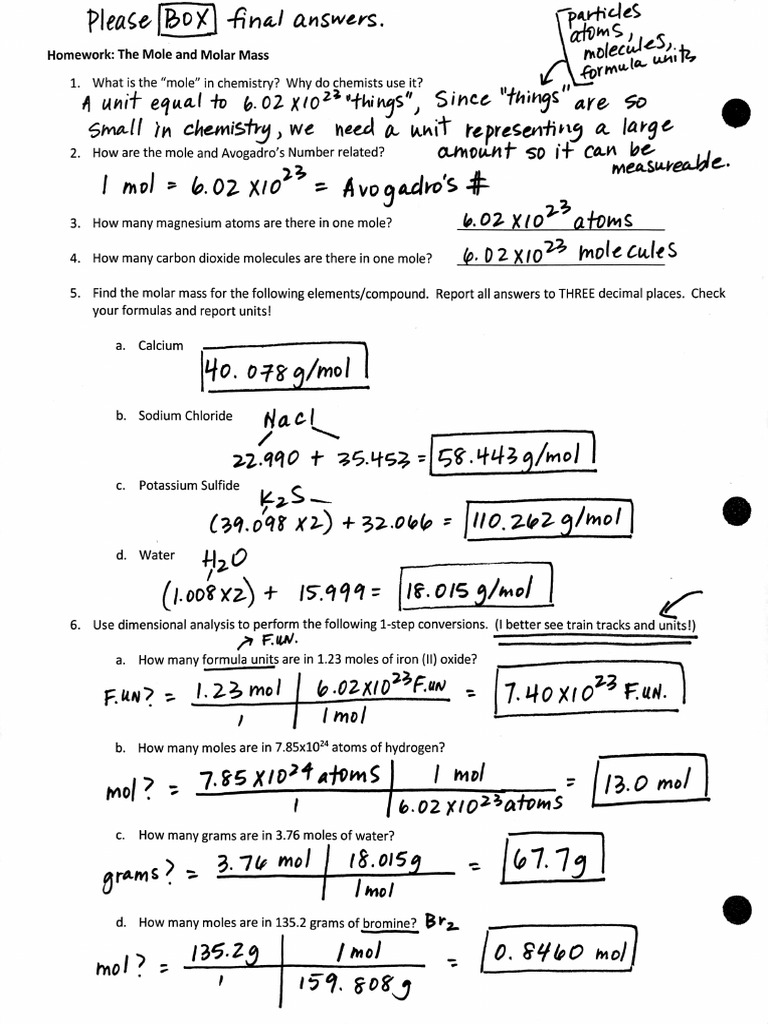 Please BOX final answers.
particles
atoms,
molecules,
formula units
Homework: The Mole and Molar Mass
1. What is the "mole" in chemistry? Why do chemists use it?
A unit equal to 6.02 X10²³ "things", Since "things" are so
small in chemistry, we need a unit representing a large
amount so it can be
measureable.
2. How are the mole and Avogadro's Number related?
1 mol = 6.02 X10²³ = Avogadro's #
3. How many magnesium atoms are there in one mole? 6.02 X10²³ atoms
4. How many carbon dioxide molecules are there in one mole? 6.02 X10²³ molecules
5. Find the molar mass for the following elements/compound. Report all answers to THREE decimal places. Check
your formulas and report units!
a. Calcium
40.078 g/mol
b. Sodium Chloride NaCl
22.990 + 35.453 = 58.443 g/mol
c. Potassium Sulfide K₂S
(39.098 X2) + 32.066 = 110.262 g/mol
d. Water H₂O
(1.008 X2) + 15.999 = 18.015 g/mol
6. Use dimensional analysis to perform the following 1-step conversions. (I better see train tracks and units!)
F.UN.
a. How many formula units are in 1.23 moles of iron (II) oxide?
F.UN? = 1.23 mol | 6.02X10²³ F.UN = 7.40X10²³ F.UN.
1 | 1 mol
b. How many moles are in 7.85x10²⁴ atoms of hydrogen?
mol? = 7.85 X10²⁴ atoms | 1 mol = 13.0 mol
1 | 6.02 X10²³ atoms
c. How many grams are in 3.76 moles of water?
grams? = 3.76 mol | 18.015g = 67.7g
1 mol
d. How many moles are in 135.2 grams of bromine? Br₂
mol? = 135.2g | 1 mol = 0.8460 mol
1 | 159.808g